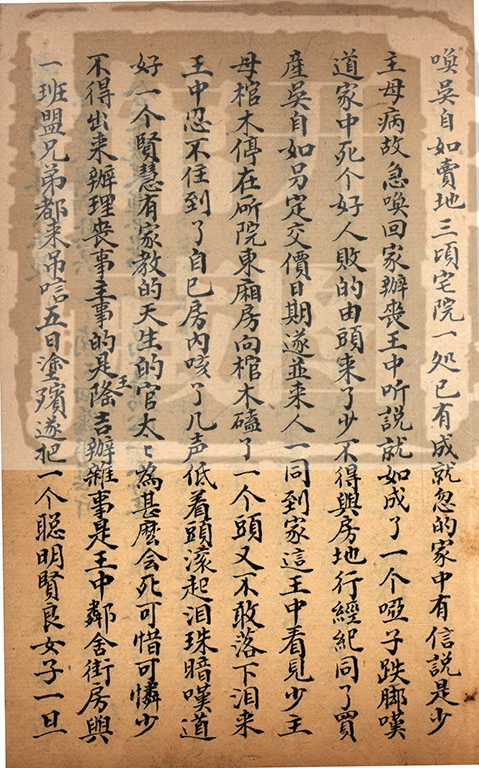 喚吳自如賣地三頃宅院一処已有成就忽的家中有信說是少
主母病故急喚回家辦喪王中听說就如成了一个啞子跌脚嘆
道家中死个好人敗的由頭来了少不得與房地行經紀同了買
産吳自如另定交價日期遂並来人一同到家這王中看見少主
母棺木停在所院東廂房向棺木磕了一个頭又不敢落下泪来
王中忍不住到了自己房內咳了几声低着頭滾起泪珠暗嘆道
好一个賢慧有家教的天生的官太〻為甚麽会死可惜可憐少
不得出来辦理喪事主事的是王隆吉辦雜事是王中鄰舍街房與
一班盟兄弟都来吊唁五日塗殯遂把一个聰明賢良女子一旦